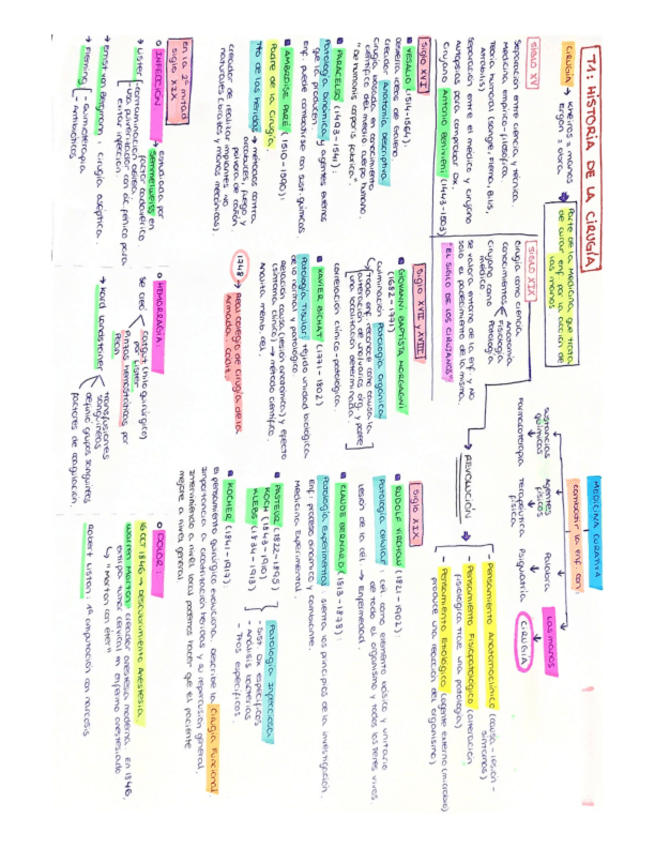 T1: HISTORIA DE LA CIRUGÍA
CIRUGÍA → kheiros = manos
Ergon = obra
Parte de la Medicina que trata
de curar enf por la acción de
las manos
MEDICINA CURATIVA
combatir la enf. con:
sustancias
químicas
Agentes
físicos
Palabra
Las manos
Farmacoterapia
Terapéutica
física
Psiquiatría
CIRUGÍA
SIGLO XV
Separación entre ciencia y técnica.
Medicina empírico-filosófica.
Teoría humoral (sangre, flema, bilis,
atrabilis)
Separación entre el médico y cirujano
Autopsias para comprobar Dx.
Cirujano Antonio Benivieni (1443-1503)
SIGLO XIX
Cirugía como ciencia
conocimientos
Anatomía
Fisiología
Patología
Cirujano como
médico
se valora entorno de la enf. y no
solo el padecimiento de la misma.
"EL SIGLO DE LOS CIRUJANOS"
REVOLUCIÓN
- Pensamiento Anatomoclínico (causa - lesión -
síntomas)
- Pensamiento Fisiopatológico (alteración
fisiológica trae una patología)
- Pensamiento Etiológico (agente externo (microbio)
produce una reacción del organismo)
SIGLO XVI
VESALIO (1514-1564):
Desierra ideas de Galeno.
creador Anatomía Descriptiva
Cirugía basada en conocimiento
científico del medio cuerpo humano.
"De humanis corporis fabrica".
PARACELSO (1493-1541):
Patología Dinámica y agentes externos
que la producen.
Enf. puede combatirse con sust. químicas
AMBROISE PARÉ (1510-1590):
Padre de la Cirugía.
Tto de las heridas → métodos contra
arcabuces, fuego y
pólvora de cañón.
creador de realizar implantes no
naturales (oculares y manos mecánicas).
SIGLO XVII y XVIII
GIOVANNI BAPTISTA MORGAGNI
(1682-1771)
culminación Patología Orgánica
Toda enf. reconoce como causa la
alteración de un(varios) org. sobre
una localización determinada.
correlación clínico-patológica.
XAVIER BICHAT (1771-1802)
Patología Tisular: tejido unidad biológica
de lo normal y patológico
Relación causa (lesión anatómica) y efecto
(síntoma clínico) → método científico.
Analiza memb. cel.
1748 → Real colegio de Cirugía de la
Armada, Cádiz.
SIGLO XIX
RUDOLF VIRCHOW (1821-1902):
Patología celular: cél como elemento básico y unitario
de todo el organismo y todos los seres vivos.
Lesión de la cél → Enfermedad.
CLAUDE BERNARD (1813-1878):
Patología Experimental: sienta los principios de la investigación.
Enf: proceso dinámico y cambiante.
Medicina Experimental.
PASTEUR (1822-1895)
KOCH (1843-1910)
KLEBS (1834-1913)
Patología Infecciosa
- Sist. Dx específicos
- Análisis bacterias
- Ttos específicos.
KOCHER (1841-1917).
El pensamiento quirúrgico evoluciona, describe la Cirugía Funcional
importancia a cicatrización heridas y su repercusión general.
interviniendo a nivel local podemos hacer que el paciente
mejore a nivel general
en la 2ª mitad
siglo XIX
INFECCIÓN
→ estudiada por
Semmelweis en
factor cadavérico.
→ Lister
- contaminación aérea
- una pulverización con ác. fénico para
evitar infección.
→ Ernst Von Bergmann: cirugía aséptica.
→ Fleming
- Quimioterapia
- Antibióticos.
HEMORRAGIA:
se creó
Catgut (hilo quirúrgico)
por Lister
Pinzas Hemostáticas por
Pean
→ Karl Landsteiner
transfusiones
sanguíneas
definió grupos sanguíneos
factores de coagulación.
DOLOR:
16 OCT 1846 → DESCUBRIMIENTO ANESTESIA.
Warren Morton: creador anestesia moderna en 1846,
extirpa tumor cervical en enfermo anestesiado
↳ "Morton con éter"
Robert Liston: 1ª amputación con narcosis